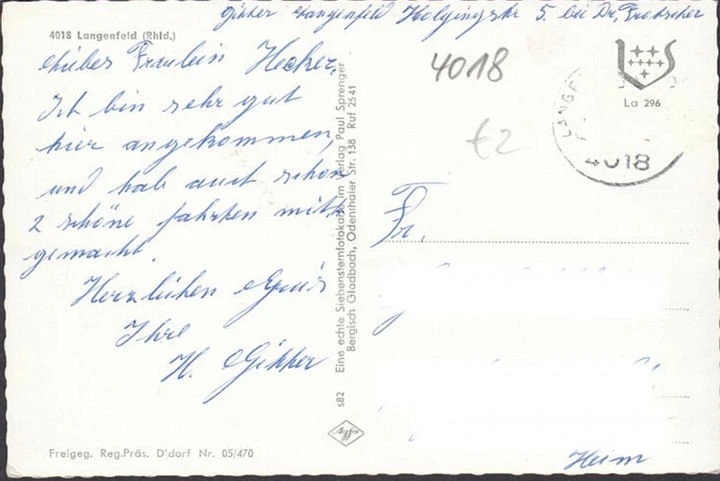 Gikker Langenfeld 5. bei Dr.
4018 Langenfeld (Rhld.)
Liebes Fräulein Hecker,
Ich bin sehr gut
hier angekommen,
und hab auch schon
2 schöne fahrten mit
gemacht.
Herzlichen Gruß
Ihre
H. Gikker
Freigeg. Reg.Präs. D'dorf Nr. 05/470
s82 Eine echte Siebensternfotokarte im Verlag Paul Sprenger
Bergisch Gladbach, Odenthaler Str. 138 Ruf 2541
Agfa
4018
€2
La 296
LANGE
4018
Fr.
Heim